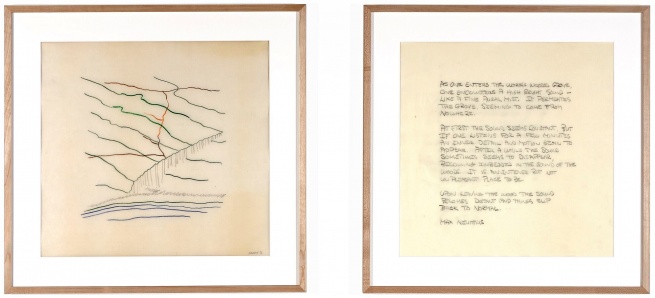 AS ONE ENTERS THE GROVE,
ONE ENCOUNTERS A HIGH BRIGHT SOUND –
LIKE A FINE AURAL MIST. IT PERMEATES
THE GROVE SEEMING TO COME FROM
NOWHERE.
AT FIRST THE SOUND SEEMS BUT
IF ONE LISTENS FOR A FEW MINUTES
AN DETAIL AND MOTION BEGIN TO
APPEAR. AFTER A WHILE THE SOUND
SOMETIMES SEEMS TO DISAPPEAR,
BECOMING IN THE SOUND OF THE
IT IS AN BUT NOT
UNPLEASANT PLACE TO BE.
UPON LEAVING THE WOOD THE SOUND
BECOMES DISTANT AND THINGS SLIP
BACK TO NORMAL.
MAX NEUHAUS